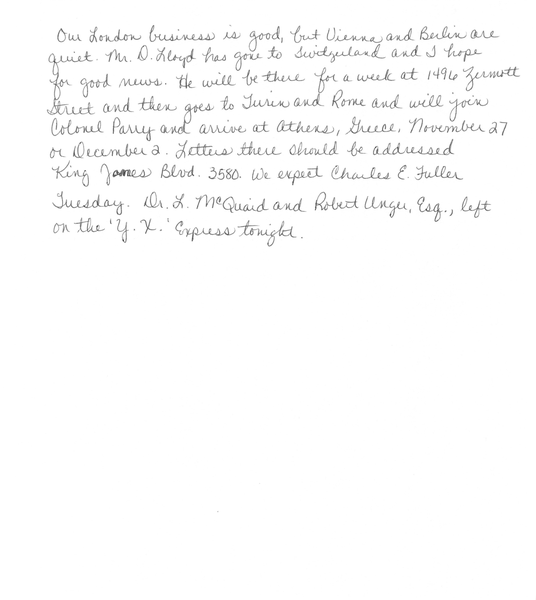 Our London business is good, but Vienna and Berlin are
quiet. Mr. D. Lloyd has gone to Switzerland and I hope
for good news. He will be there for a week at 1496 Zermott
Street and then goes to Turin and Rome and will join
Colonel Parry and arrive at Athens, Greece, November 27
or December 2. Letters there should be addressed
King James Blvd. 3580. We expect Charles E. Fuller
Tuesday. Dr. L. McQuaid and Robert Unger, Esq., left
on the 'Y. X.' Express tonight.